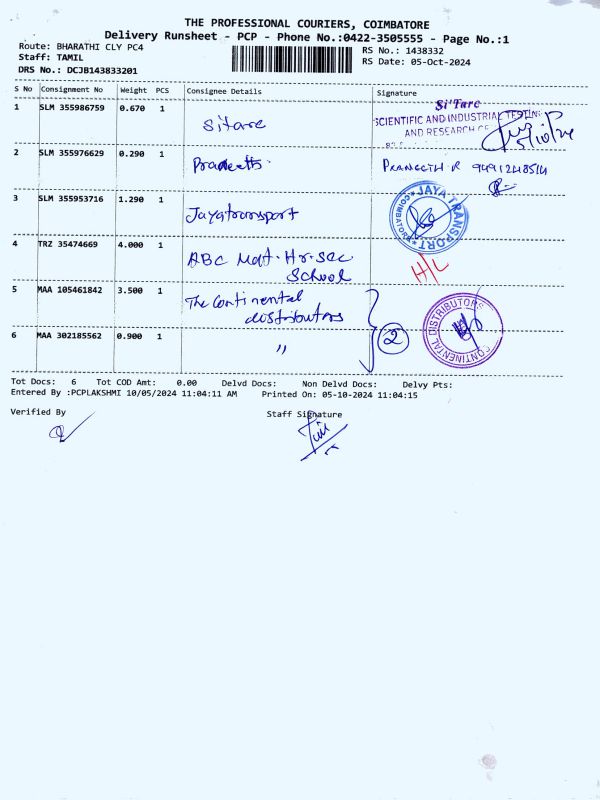 THE PROFESSIONAL COURIERS, COIMBATORE
Delivery Runsheet - PCP - Phone No.:0422-3505555 - Page No.:1
Route: BHARATHI CLY PC4 RS No.: 1438332
Staff: TAMIL RS Date: 05-Oct-2024
DRS No.: DCJB143833201
S No Consignment No Weight PCS Consignee Details Signature
1 SLM 355986759 0.670 1 Sitare
Si'Tarc
SCIENTIFIC AND INDUSTRIAL TESTING
AND RESEARCH
5/10/24
2 SLM 355976629 0.290 1 PRANEETH R
3 SLM 355953716 1.290 1 Jayatransport
JAYA TRANSPORT COIMBATORE
4 TRZ 35474669 4.000 1 ABC Mat. Hr. Sec
School H/L
5 MAA 105461842 3.500 1 The Continental
distributors
2
CONTINENTAL DISTRIBUTORS
6 MAA 302185562 0.900 1 "
Tot Docs: 6 Tot COD Amt: 0.00 Delvd Docs: Non Delvd Docs: Delvy Pts:
Entered By :PCPLAKSHMI 10/05/2024 11:04:11 AM Printed On: 05-10-2024 11:04:15
Verified By Staff Signature